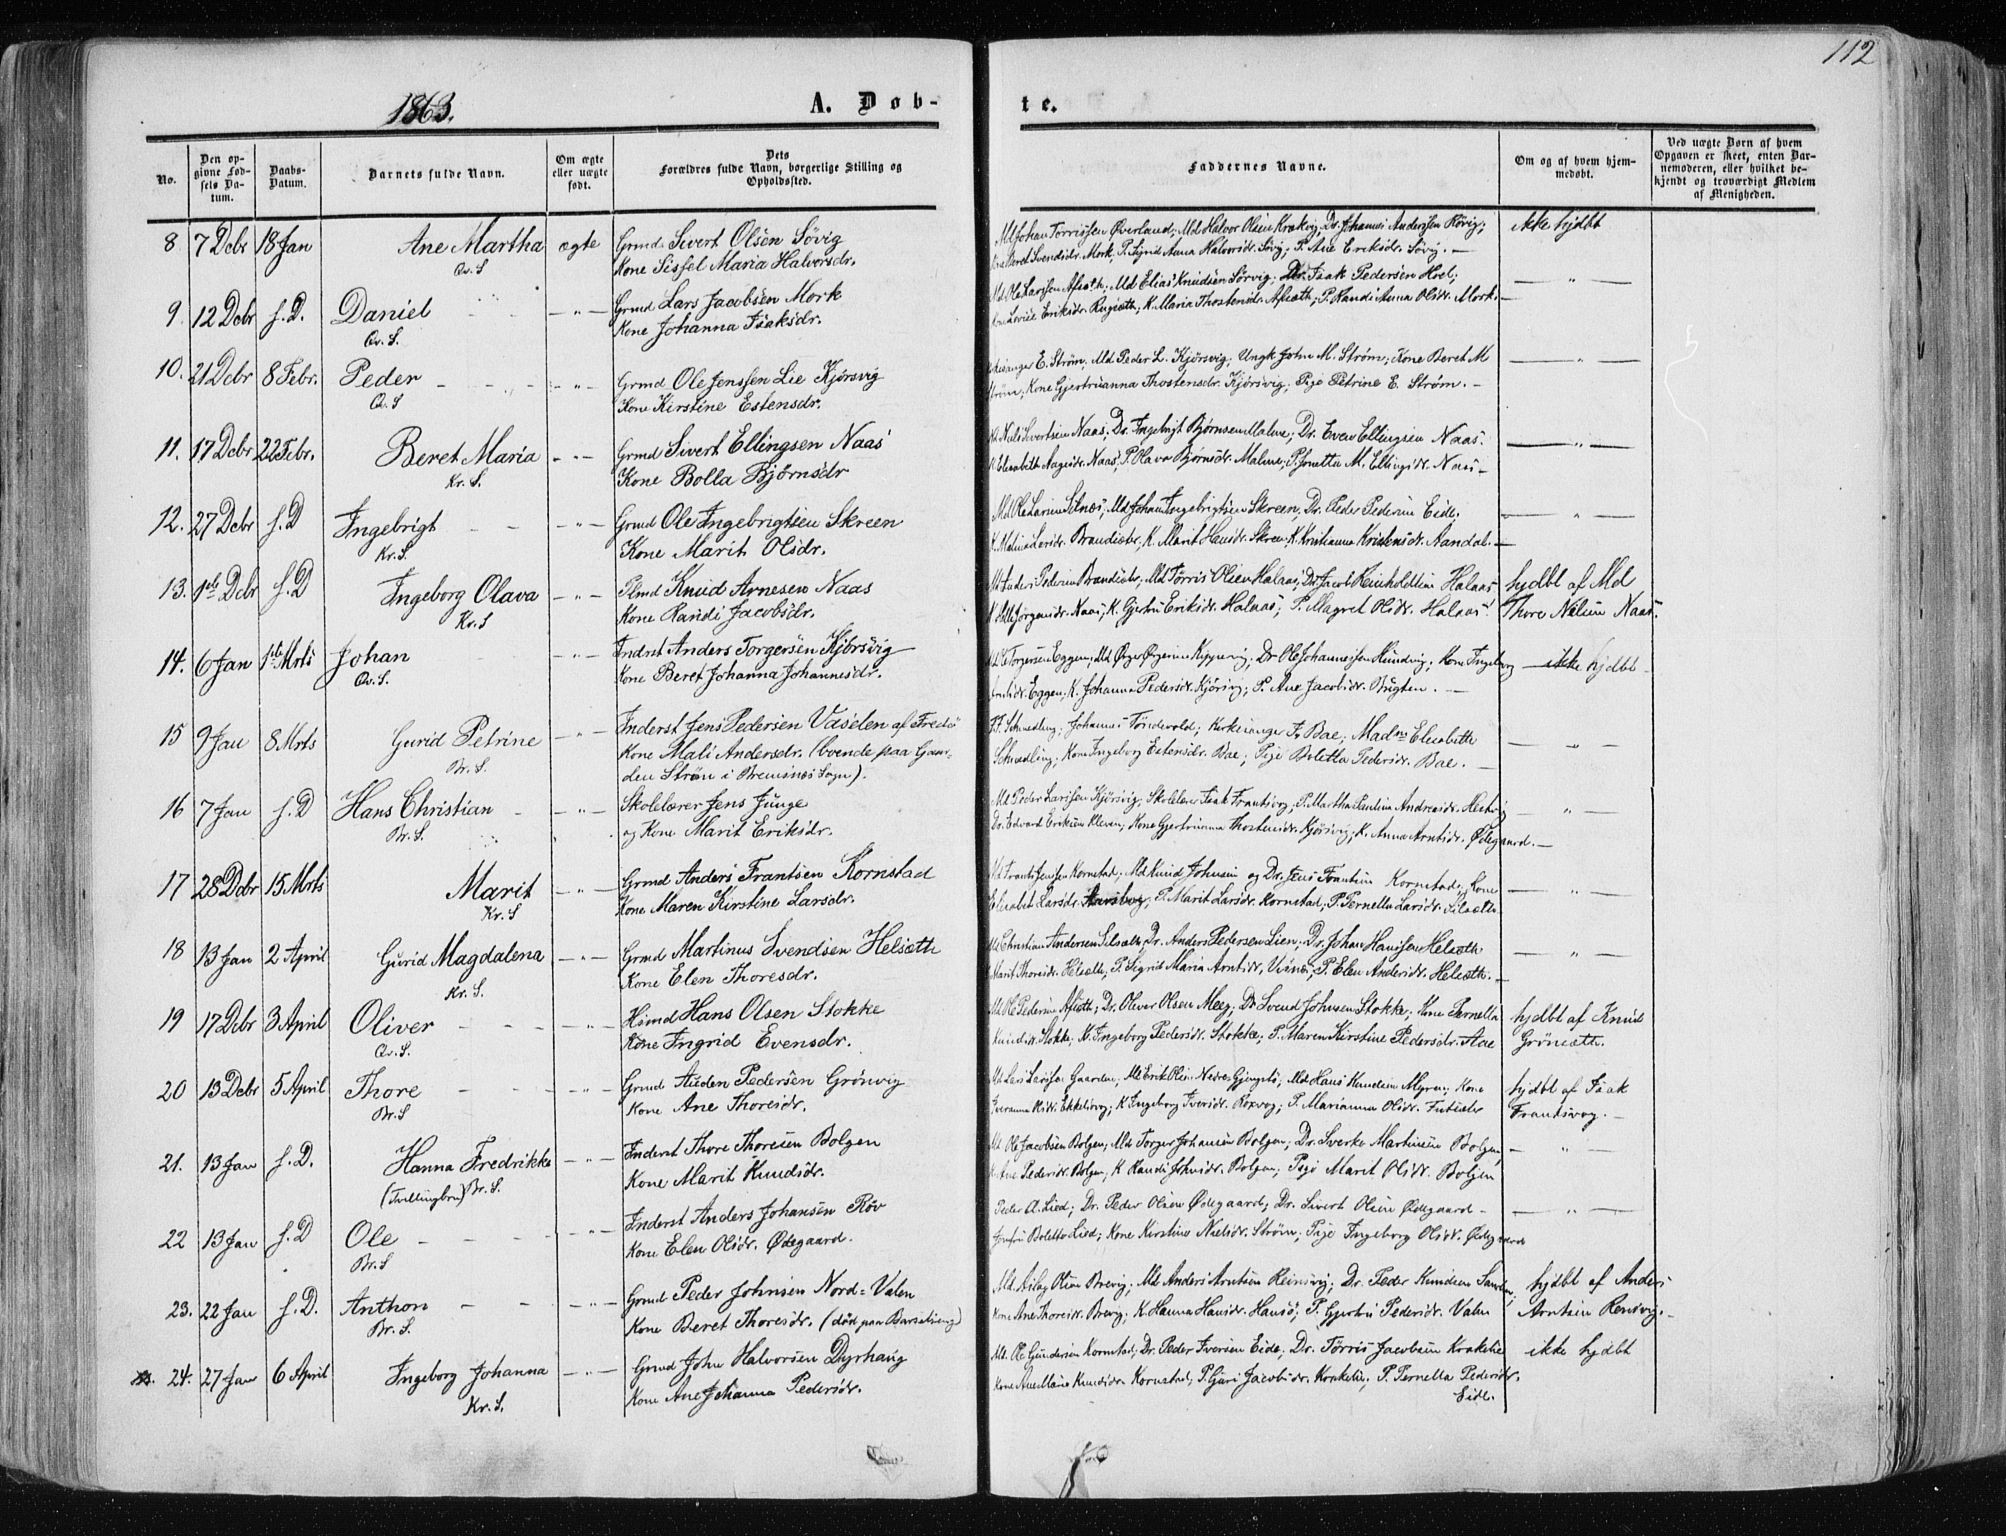 112
1863.
A. Døb-
te.
No.
Den op-
givne Fød-
sels Da-
tum.
Daabs-
Datum.
Barnets fulde Navn.
Om ægte
eller uægte
født.
Dets
Forældres fulde Navn, borgerlige Stilling og
Opholdssted.
Faddernes Navne.
Om og af hvem hjem-
medøbt.
Ved uægte Børn af hvem
Opgaven er skeet, enten Bar-
nemoderen, eller hvilket be-
kjendt og troværdigt Medlem
af Menigheden.
8 7 Debr 18 Jan Ane Martha ægte Grmd Sivert Olsen Sövig
Qv. S. Kone Sissel Maria Halvorsdr.
Md Johan Torrissen Överland; Md Halvor Olsen Krakvig; Dr. Johannes Anderssen Rövig;
Beret Svendsdr. Mork, P. Sigrid Anna Halvorsdr. Sövig; P. Ane Eriksdr. Sövig. —
ikke hjdbt
9. 12 Debr s. D. Daniel — " — Grmd Lars Jacobsen Mork
Qv. S. Kone Johanna Isaksdr.
Md Ole Larssen Afsæth; Md Elias Knudsen Sörvig; Dr. Isak Pedersen Hoel;
Eriksdr. K. Maria Thostensdr. Afsæth; P. Randi Anna Olsdr. Mork. —
— " —
10. 21 Debr 8 Febr. Peder — " — Grmd Ole Jenssen Lie Kjörsvig
Qv. S Kone Kirstine Estensdr.
E. Ström, Md Peder L. Kjörsvig, Ungk John M. Ström; Kone Beret M
Ström; Kone Gjertruanna Thostensdr. Kjörsvig; Pige Petrine E. Ström. —
— " —
11. 17 Debr 22 Febr. Beret Maria — " — Grmd Sivert Ellingsen Naas
Kr. S. Kone Bolla Björnsdr
Niels Sivertsen Naas; Dr. Ingebrigt Björnsen Malme; Dr. Even Ellingsen Naas.
Elisabeth Aagesdr. Naas; P. Olava Björnsdr. Malme; P. Jonetta M. Ellingsdr. Naas —
— " —
12. 27 Debr s. D Ingebrigt — " — Grmd Ole Ingebrigtsen Skreen
Kr. S. Kone Marit Olsdr.
Md Ole Larsen Silnæs; Md Johan Ingebrigtsen Skreen, Dr. Peder Pedersen Eide.
K. Larsdr. K. Marit Hansdr. Skreen; K. Kristianna Kristensdr. Aandal. —
— " —
13. 1ste Debr s. D Ingeborg Olava — " — Plmd Knud Arnesen Naas
Kr. S Kone Randi Jacobsdr.
Md Anders Pedersen Md Törris Olsen Halaas; Dr. Jacob Reinholdtsen Halaas
Jörgensdr. Naas; K. Gjertru Eriksdr. Halaas; P. Magret Olsdr. Halaas
hjdbt af Md
Thore Nilsen Naas.
14. 6 Jan 1ste Mrts Johan Indrst Anders Torgersen Kjörsvig
Qv. S. Kone Beret Johanna Johannesdr.
Torgersen Eggen; Md Dr Ole Johannessen Kone Ingeborg
Eggen, K. Johanna Pedersdr. Kjörsvig; P. Ane Jacobsdr. Bugten. —
ikke hjdbt
15 9 Jan 8 Mrts Gurid Petrine — " — Inderst Jens Pedersen Vaselen af Fredö
Br. S. Kone Mali Andersdr. (boende paa Gaar-
den Ström i Bremsnæs Sogn).
Schmedling; Johannes Töndevold; Kirkesanger Fr Bae; Madme Elisabeth
Schmedling; Kone Ingeborg Estensdr. Bae; Pige Boletta Pedersdr. Bae. —
— " —
16 7 Jan s. D Hans Christian — " — Skolelærer Jens Junge
Br. S. og Kone Marit Eriksdr.
Md Peder Larssen Kjörsvig, Skolelærer Isak Frantsvog, P. Martha Paulina Andreasdr. Hestvig
Dr. Edvard Eriksen Kleven; Kone Gjertruanna Thostensdr. Kjörsvig; K. Anna Arntsdr. Ødegaard. —
— " —
17 28 Debr 15 Mrts Marit — " — Grmd Anders Frantsen Kornstad
Kr. S Kone Maren Kirstine Larsdr.
Md Frants Jenssen Kornstad; Md Knud Johnsen og Dr. Jens Frantsen Kornstad, Kone
Elisabet Larsdr. P. Marit Larsdr. Kornstad; P. Pernella Larsdr. Silsæth.
— " —
18 13 Jan 2 April Gurid Magdalena — " — Grmd Martinus Svendsen Helsæth
Kr. S. Kone Elen Thoresdr.
Md Christian Andersen Silsæth; Dr. Anders Pedersen Lien; Dr. Johan Hanssen Helsæth
Marit Thoresdr. Helsæth; P. Sigrid Maria Arntsdr. Visnæs; P. Elen Andersdr. Helsæth. —
— " —
19 17 Debr 3 April Oliver — " — Hsmd Hans Olsen Stokke
Qv. S. Kone Ingrid Evensdr.
Md Ole Pedersen Afsæth; Dr. Oliver Olsen Meeg; Dr Svend Johnsen Stokke; Kone Pernella
Knudsdr. Stokke; K. Ingeborg Pedersdr. Stokke; P. Maren Kirstine Pedersdr. Aae
hjdbt af Knud
Grönsæth.
20 13 Debr 5 April Thore — " — Grmd Auden Pedersen Grönvig
Br. S Kone Ane Thoresdr.
Md Lars Larssen Gaarden; Md Erik Olsen Nedre-Gjengstö; Md Hans Knudsen Myren; Kone
Olsdr. Ekkilsvog; K Ingeborg Iversdr. Roxvog; P. Marianna Olsdr. Futsæter
hjdbt af Isak
Frantsvog. —
21. 13 Jan s. D. Hanna Fredrikke — " — Inderst Thore Thoresen Bolgen
(Tvillingbrn) Br. S. Kone Marit Knudsdr.
Md Ole Jacobsen Bolgen; Md Torger Johansen Bolgen; Dr. Sverke Martinsen Bolgen
Ane Pedersdr. Bolgen; K Randi Johnsdr. Bolgen; Pige Marit Olsdr. Bolgen
— " —
22 13 Jan s. D Ole — " — Inderst Anders Johansen Röv
Br. S Kone Elen Olsdr. Ødegaard.
Peder A. Lied; Dr. Peder Olsen Ødegaard; Dr. Sivert Olsen Ødegaard —
Jomfru Boletta Lied; Kone Kirstine Nielsdr. Ström; Pige Ingeborg Olsdr. Ødegaard
— " —
23. 22 Jan s. D. Anthon — " — Grmd Peder Johnsen Nord-Valen
Br. S. Kone Beret Thoresdr. (död paa Barselseng)
Md. Aslag Olsen Brevig; Md Anders Arntsen Reinsvig; Dr. Peder Knudsen
Kone Ane Thoresdr. Brevig; K Hanna Hansdr. Hansö; P. Gjertru Pedersdr. Valen
hjdbt af Anders
Arntsen Rensvig. —
24. 27 Jan 6 April Ingeborg Johanna — " — Grmd John Halvorsen Dyrhaug
Kr. S. Kone Ane Johanna Pedersdr.
Md. Ole Gundersen Kornstad; Dr. Peder Iversen Eide; Dr. Törris Jacobsen Krakelie
Kone Ane Maria Knudsdr. Kornstad; P. Guri Jacobsdr. Krakelie; P. Pernella Pedersdr.
Eide.
ikke hjdbt